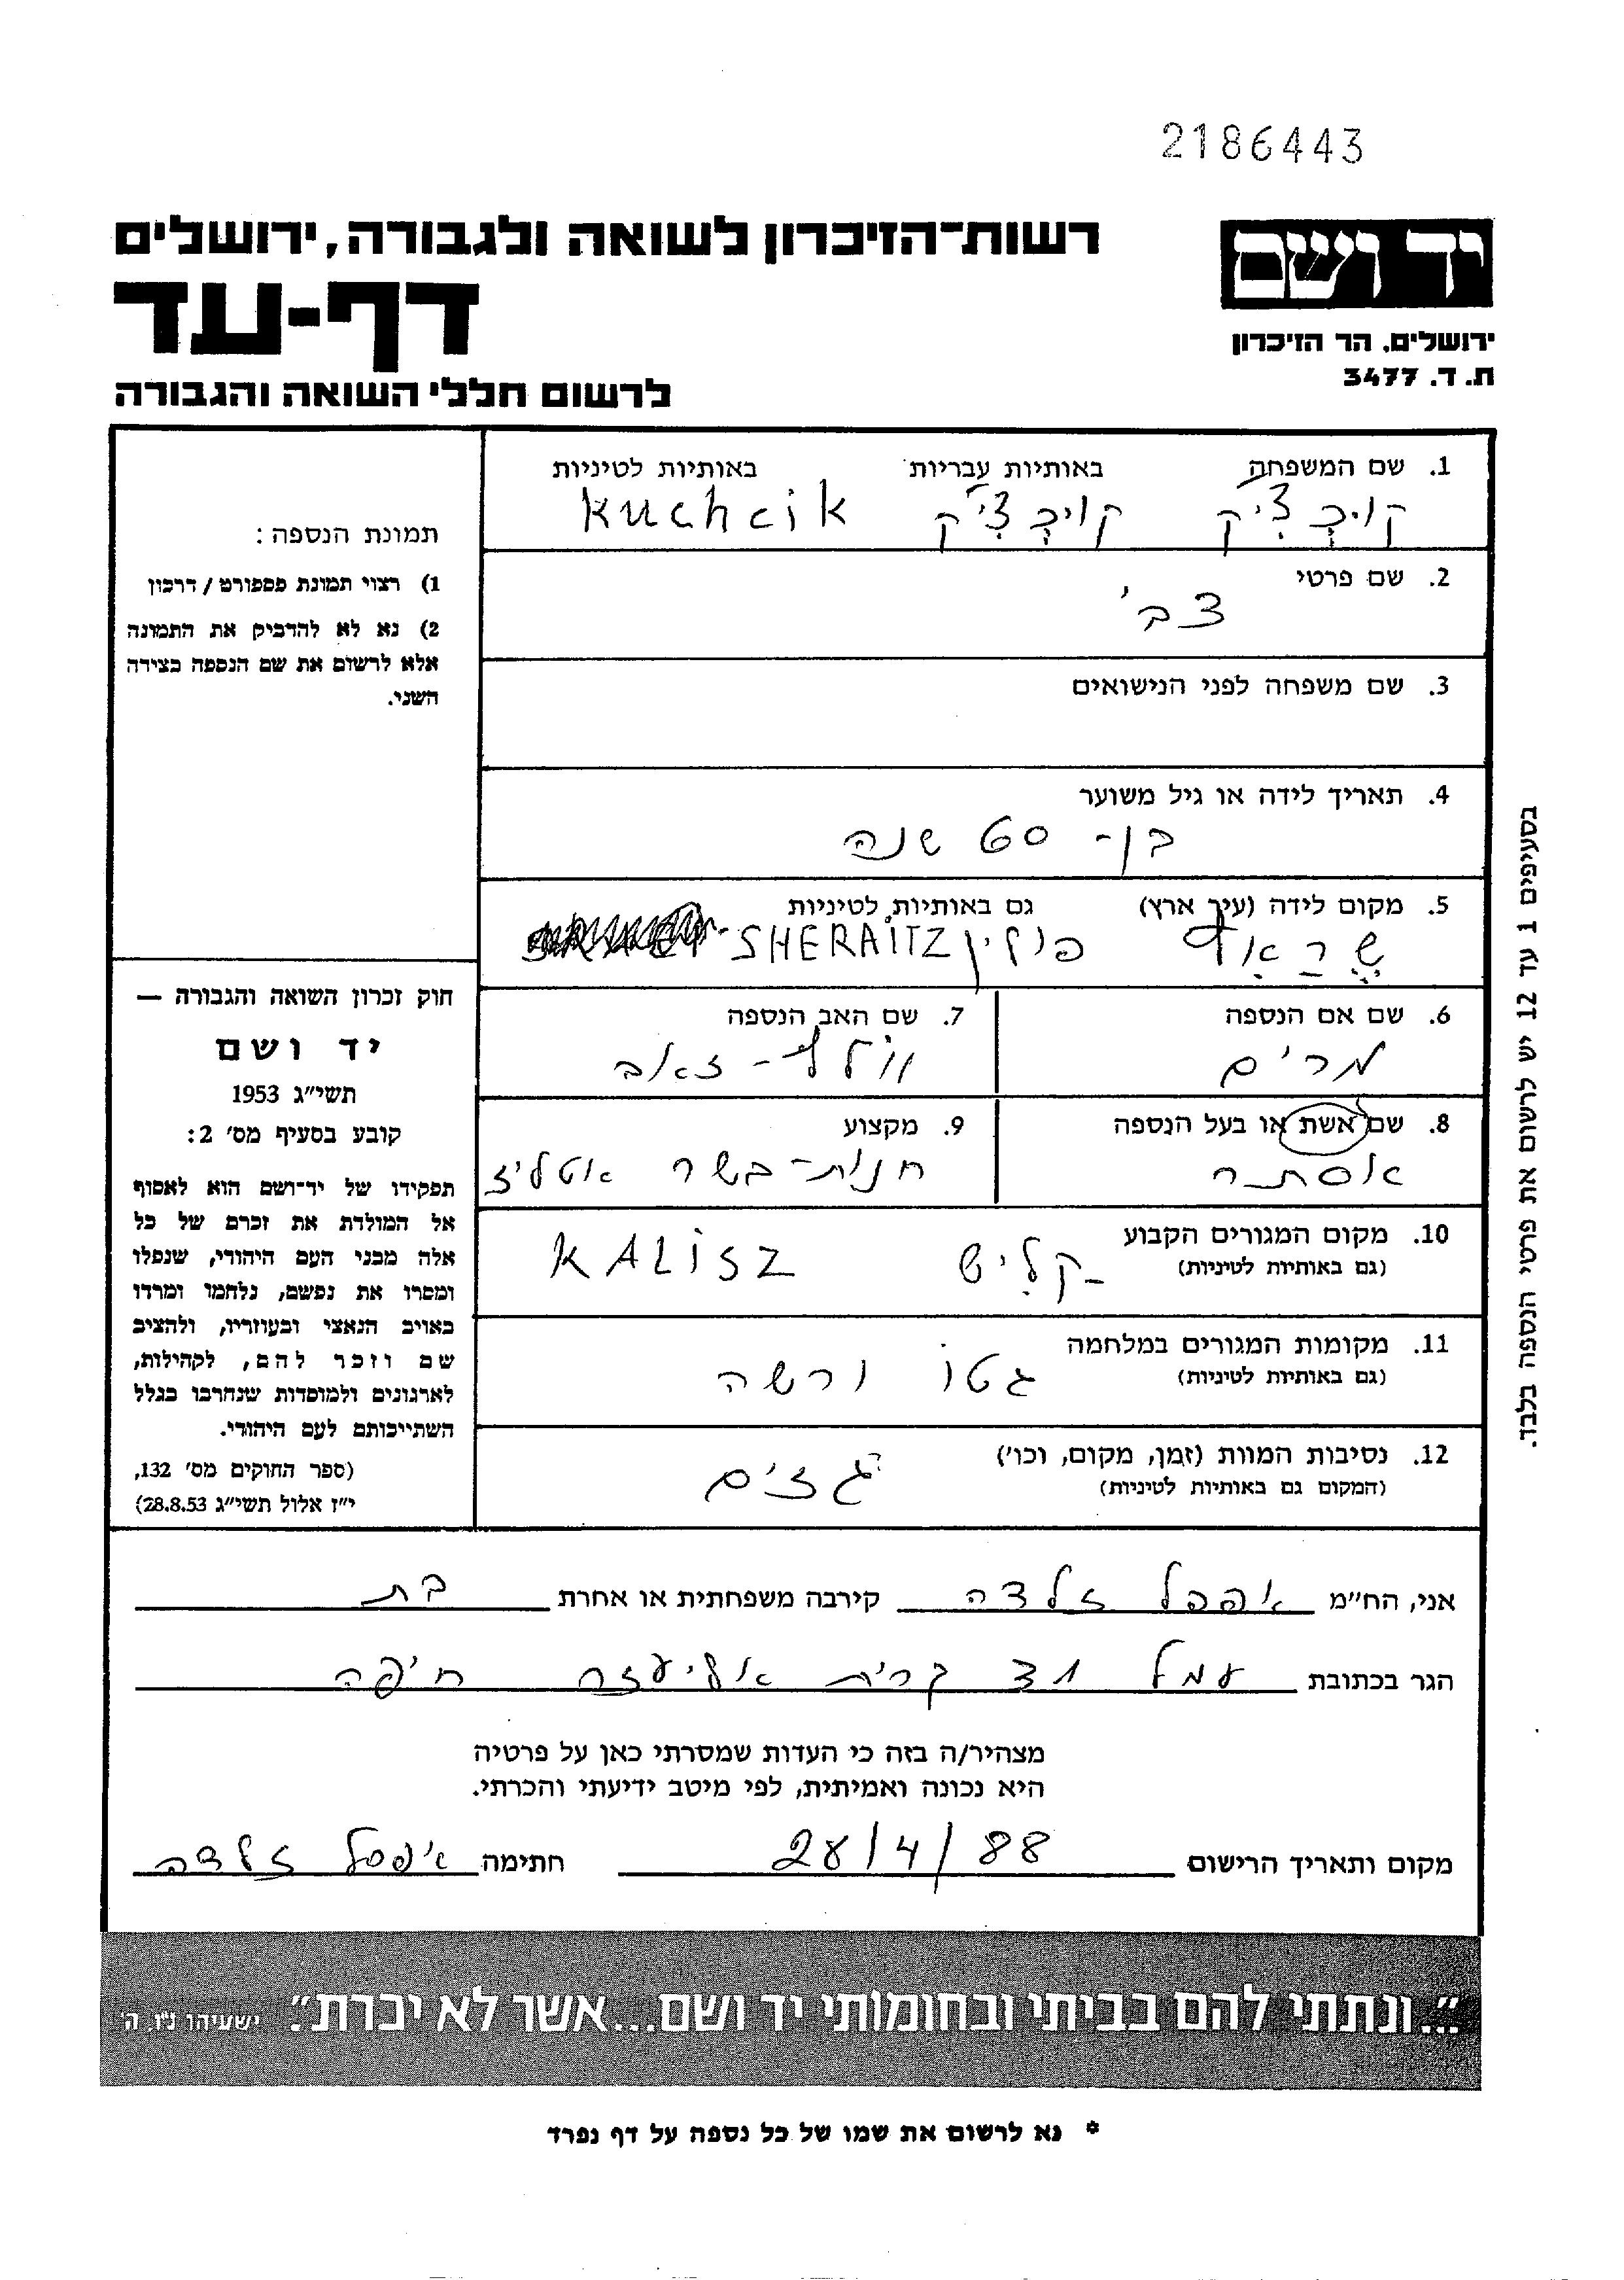 2186443
יד ושם
ירושלים, הר הזיכרון
ת. ד. 3477
רשות־הזיכרון לשואה ולגבורה, ירושלים
דף-עד
לרשום חללי השואה והגבורה
תמונת הנספה:
1) רצוי תמונת פספורט / דרכון
2) נא לא להדביק את התמונה
אלא לרשום את שם הנספה בצידה
השני.
חוק זכרון השואה והגבורה —
יד ושם
תשי"ג 1953
קובע בסעיף מס' 2:
תפקידו של יד-ושם הוא לאסוף
אל המולדת את זכרם של כל
אלה מבני העם היהודי, שנפלו
ומסרו את נפשם, נלחמו ומרדו
באויב הנאצי ובעוזריו, ולהציב
שם וזכר להם, לקהילות,
לארגונים ולמוסדות שנחרבו בגלל
השתייכותם לעם היהודי.
(ספר החוקים מס' 132,
י"ז אלול תשי"ג 28.8.53)
1. שם המשפחה באותיות עבריות באותיות לטיניות
קויכציק קויכציק Kuchcik
2. שם פרטי
צבי
3. שם משפחה לפני הנישואים
4. תאריך לידה או גיל משוער
בן - 60 שנה
5. מקום לידה (עיר ארץ) גם באותיות לטיניות
פולין SHERAITZ
6. שם אם הנספה
מרים
7. שם האב הנספה
וולף - זאב
8. שם אשת או בעל הנספה
אסתר
9. מקצוע
חנות-בשר אטליז
10. מקום המגורים הקבוע
(גם באותיות לטיניות)
קליש KALISZ
11. מקומות המגורים במלחמה
(גם באותיות לטיניות)
גטו ורשה
12. נסיבות המוות (זמן, מקום, וכו')
(המקום גם באותיות לטיניות)
גזים
בסעיפים 1 עד 12 יש לרשום את פרטי הנספה בלבד.
אני, הח"מ אפפל זלדה קירבה משפחתית או אחרת בת
הגר בכתובת עמל קרית אליעזר חיפה
מצהיר/ה בזה כי העדות שמסרתי כאן על פרטיה
היא נכונה ואמיתית, לפי מיטב ידיעתי והכרתי.
מקום ותאריך הרישום 28/4/88 חתימה זלדה
"...ונתתי להם בביתי ובחומותי יד ושם...אשר לא יכרת". ישעיהו נ"ו, ה'
* נא לרשום את שמו של כל נספה על דף נפרד